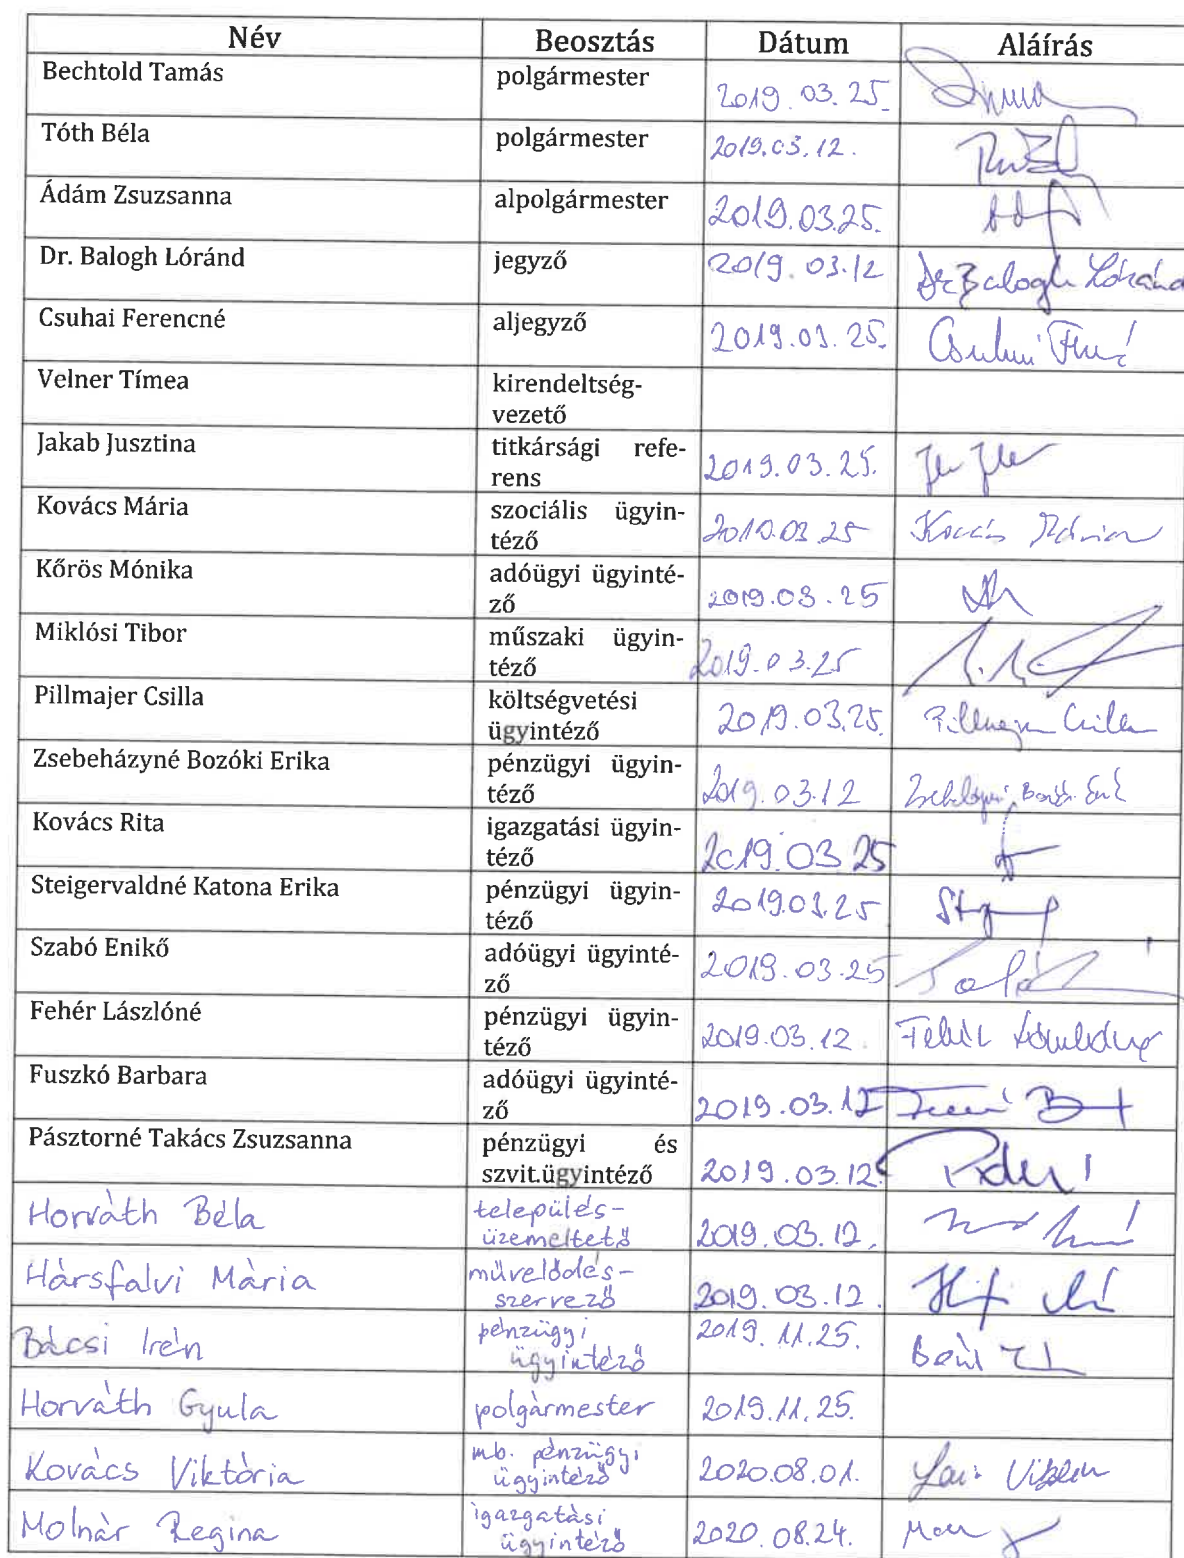 Név Beosztás Dátum Aláírás
Bechtold Tamás polgármester 2019.03.25.
Tóth Béla polgármester 2019.03.12.
Ádám Zsuzsanna alpolgármester 2019.03.25.
Dr. Balogh Lóránd jegyző 2019.03.12 Dr Balogh Lóránd
Csuhai Ferencné aljegyző 2019.03.25.
Velner Tímea kirendeltség-
vezető
Jakab Jusztina titkársági refe-
rens 2019.03.25.
Kovács Mária szociális ügyin-
téző 2019.03.25 Kovács Mária
Kőrös Mónika adóügyi ügyinté-
ző 2019.03.25
Miklósi Tibor műszaki ügyin-
téző 2019.03.25
Pillmajer Csilla költségvetési
ügyintéző 2019.03.25.
Zsebeházyné Bozóki Erika pénzügyi ügyin-
téző 2019.03.12
Kovács Rita igazgatási ügyin-
téző 2019.03 25
Steigervaldné Katona Erika pénzügyi ügyin-
téző 2019.03.25
Szabó Enikő adóügyi ügyinté-
ző 2019.03.25
Fehér Lászlóné pénzügyi ügyin-
téző 2019.03.12. Fehér Lászlóné
Fuszkó Barbara adóügyi ügyinté-
ző 2019.03.12
Pásztorné Takács Zsuzsanna pénzügyi és
szvit.ügyintéző 2019.03.12.
Horváth Béla település-
üzemeltető 2019.03.12.
Hársfalvi Mária művelődés-
szervező 2019.03.12.
Bácsi Irén pénzügyi
ügyintéző 2019.11.25.
Horváth Gyula polgármester 2019.11.25.
Kovács Viktória mb. pénzügyi
ügyintéző 2020.08.01.
Molnár Regina igazgatási
ügyintéző 2020.08.24.